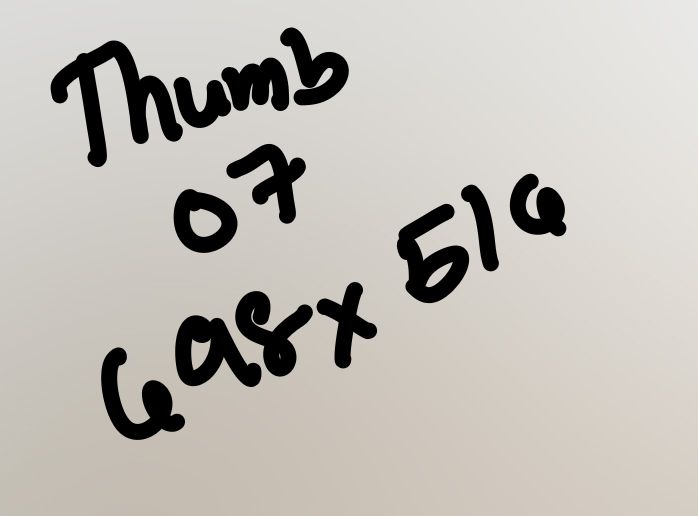 Thumb
07
698x516